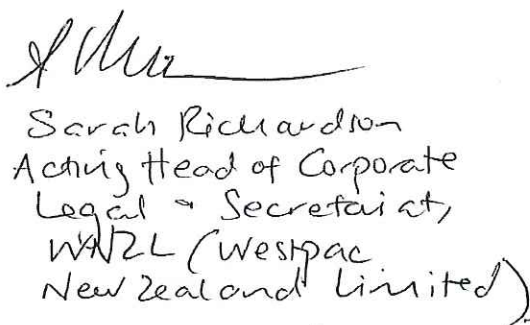 Sarah Richardson
Acting Head of Corporate
Legal & Secretariat,
WNZL (Westpac
New Zealand Limited)